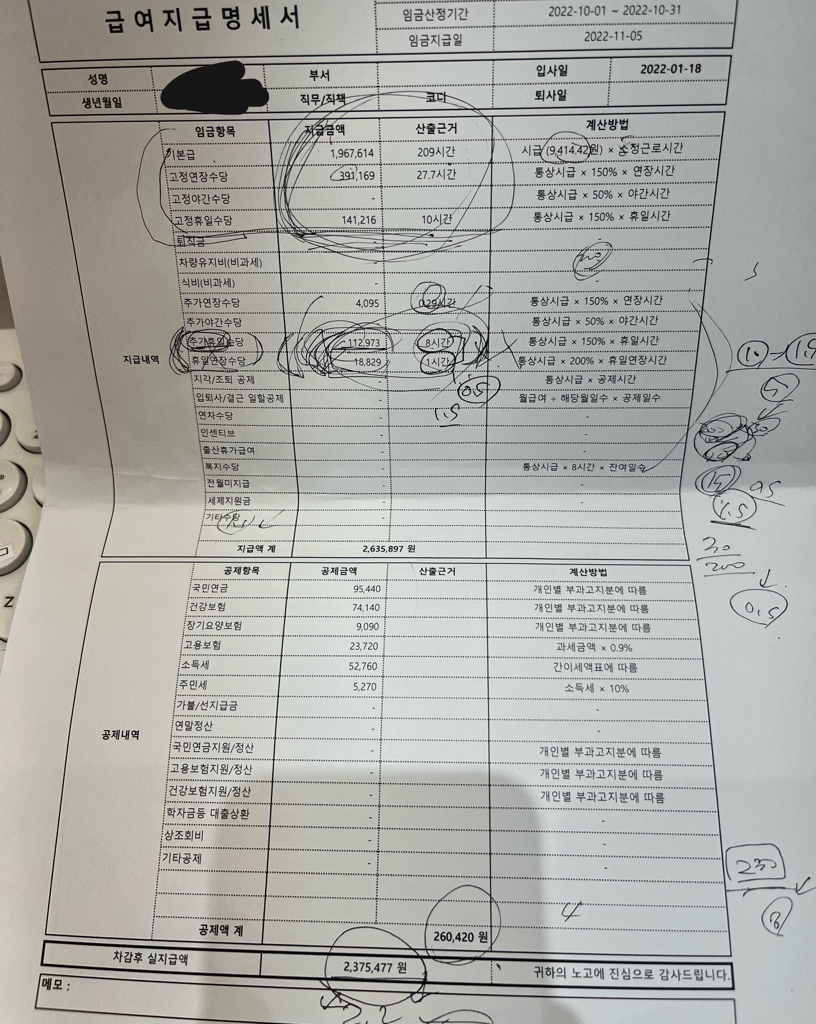 급여지급명세서
임금산정기간 2022-10-01 ~ 2022-10-31
임금지급일 2022-11-05
성명 부서 입사일 2022-01-18
생년월일 직무/직책 코디 퇴사일
임금항목 지급금액 산출근거 계산방법
기본급 1,967,614 209시간 시급 (9,414.42원) × 소정근로시간
고정연장수당 391,169 27.7시간 통상시급 × 150% × 연장시간
고정야간수당 - 통상시급 × 50% × 야간시간
고정휴일수당 141,216 10시간 통상시급 × 150% × 휴일시간
퇴직금 -
차량유지비(비과세) -
식비(비과세) - -
추가연장수당 4,095 0.29시간 통상시급 × 150% × 연장시간
추가야간수당 - 통상시급 × 50% × 야간시간
지급내역
추가휴일수당 112,973 8시간 통상시급 × 150% × 휴일시간
휴일연장수당 18,829 1시간 통상시급 × 200% × 휴일연장시간
지각/조퇴 공제 - 통상시급 × 공제시간
0.5
입퇴사/결근 일할공제 - 월급여 ÷ 해당월일수 × 공제일수
1.5
연차수당 - -
인센티브 - -
출산휴가급여 - -
복지수당 - 통상시급 × 8시간 × 잔여일수
전월미지급 - -
세제지원금 - -
기타수당 - -
지급액 계 2,635,897 원
0.5
공제항목 공제금액 산출근거 계산방법
국민연금 95,440 개인별 부과고지분에 따름
건강보험 74,140 개인별 부과고지분에 따름
장기요양보험 9,090 개인별 부과고지분에 따름
고용보험 23,720 과세금액 × 0.9%
소득세 52,760 간이세액표에 따름
주민세 5,270 소득세 × 10%
가불/선지급금 - -
연말정산 - -
공제내역
국민연금지원/정산 - 개인별 부과고지분에 따름
고용보험지원/정산 - 개인별 부과고지분에 따름
건강보험지원/정산 - 개인별 부과고지분에 따름
학자금등 대출상환 - -
상조회비 - -
기타공제 - -
230
4
공제액 계 260,420 원
차감후 실지급액 2,375,477 원 귀하의 노고에 진심으로 감사드립니다.
메모 :
2.2